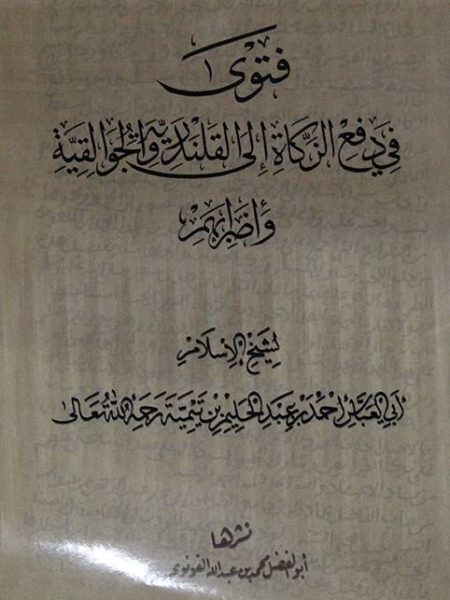 فتوى
في دفع الزكاة إلى القلندرية والجوالقية
وأضرابهم
لشيخ الإسلام
أبي العباس أحمد بن عبد الحليم بن تيمية رحمه الله تعالى
نشرها
أبو الفضل محمد بن عبد الله القونوي